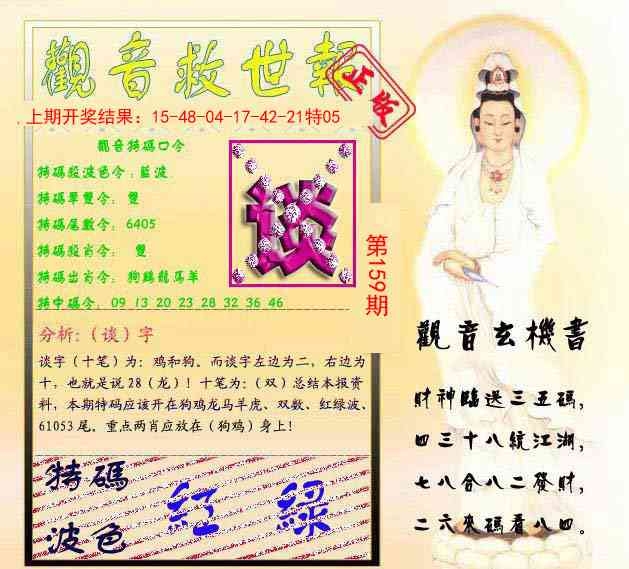 觀音救世報
正版
上期开奖结果：15-48-04-17-42-21特05
觀音特碼口令
特碼段波色令：藍波
特碼單雙令： 雙
特碼尾數令： 6405
特碼段肖令： 雙
特碼出肖令： 狗鷄龍馬羊
特中碼令： 09 13 20 23 28 32 36 46
谈
第159期
分析:（谈）字
谈字（十笔）为：鸡和狗。而谈字左边为二，右边为
十，也就是说28（龙）！十笔为：（双）总结本报资
料，本期特码应该开在狗鸡龙马羊虎、双数、红绿波、
61053尾。重点两肖应放在（狗鸡）身上！
特碼
波色
紅 綠
觀音玄機書
財神臨送三五碼，
四三十八繞江湖，
七八合八二發財，
二六來碼看八四。